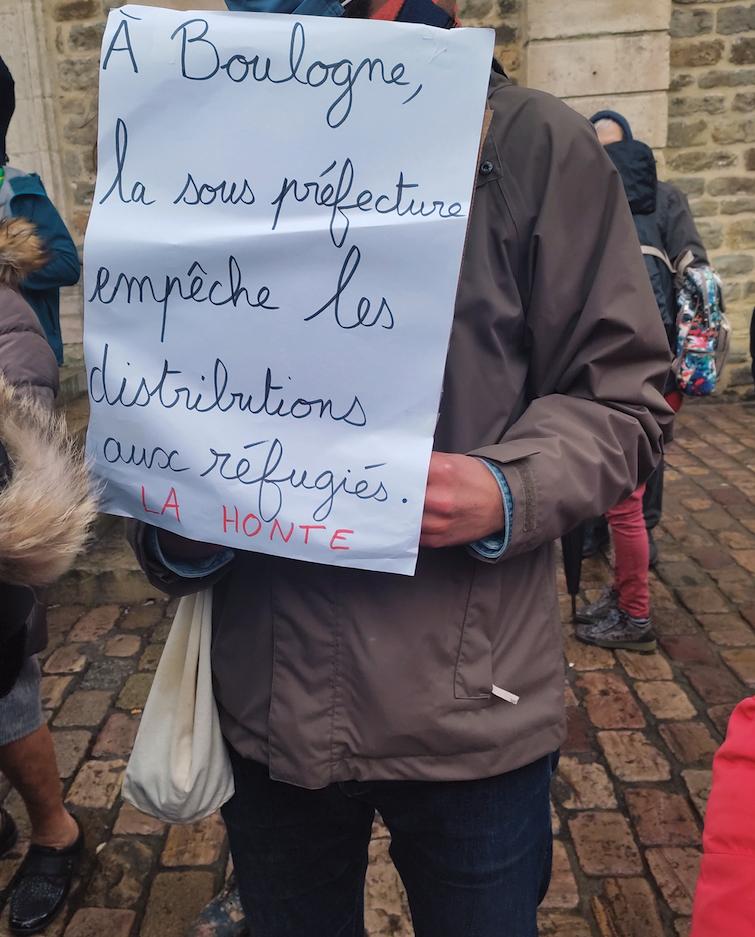 À Boulogne,
la sous préfecture
empêche les
distributions
aux réfugiés.
LA HONTE